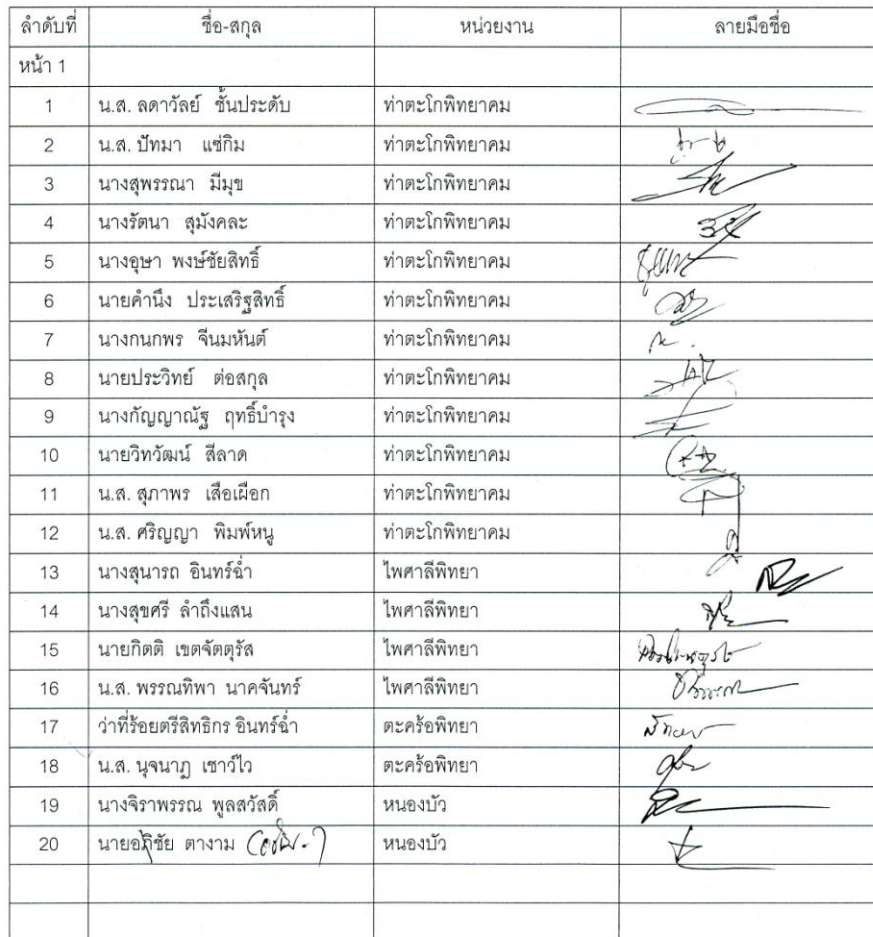 ลำดับที่ ชื่อ-สกุล หน่วยงาน ลายมือชื่อ
หน้า 1
1 น.ส. ลดาวัลย์ ชั้นประดับ ท่าตะโกพิทยาคม
2 น.ส. ปัทมา แซ่กิม ท่าตะโกพิทยาคม
3 นางสุพรรณา มีมุข ท่าตะโกพิทยาคม
4 นางรัตนา สุมังคละ ท่าตะโกพิทยาคม
5 นางอุษา พงษ์ชัยสิทธิ์ ท่าตะโกพิทยาคม
6 นายคำนึง ประเสริฐสิทธิ์ ท่าตะโกพิทยาคม
7 นางกนกพร จีนมหันต์ ท่าตะโกพิทยาคม
8 นายประวิทย์ ต่อสกุล ท่าตะโกพิทยาคม
9 นางกัญญาณัฐ ฤทธิ์บำรุง ท่าตะโกพิทยาคม
10 นายวิทวัฒน์ สีลาด ท่าตะโกพิทยาคม
11 น.ส. สุภาพร เสือเผือก ท่าตะโกพิทยาคม
12 น.ส. ศริญญา พิมพ์หนู ท่าตะโกพิทยาคม
13 นางสุนารถ อินทร์ฉ่ำ ไพศาลีพิทยา
14 นางสุขศรี ลำถึงแสน ไพศาลีพิทยา
15 นายกิตติ เขตจัตตุรัส ไพศาลีพิทยา
16 น.ส. พรรณทิพา นาคจันทร์ ไพศาลีพิทยา
17 ว่าที่ร้อยตรีสิทธิกร อินทร์ฉ่ำ ตะคร้อพิทยา
18 น.ส. นุจนาฏ เชาว์ไว ตะคร้อพิทยา
19 นางจิราพรรณ พูลสวัสดิ์ หนองบัว
20 นายอภิชัย ตางาม หนองบัว